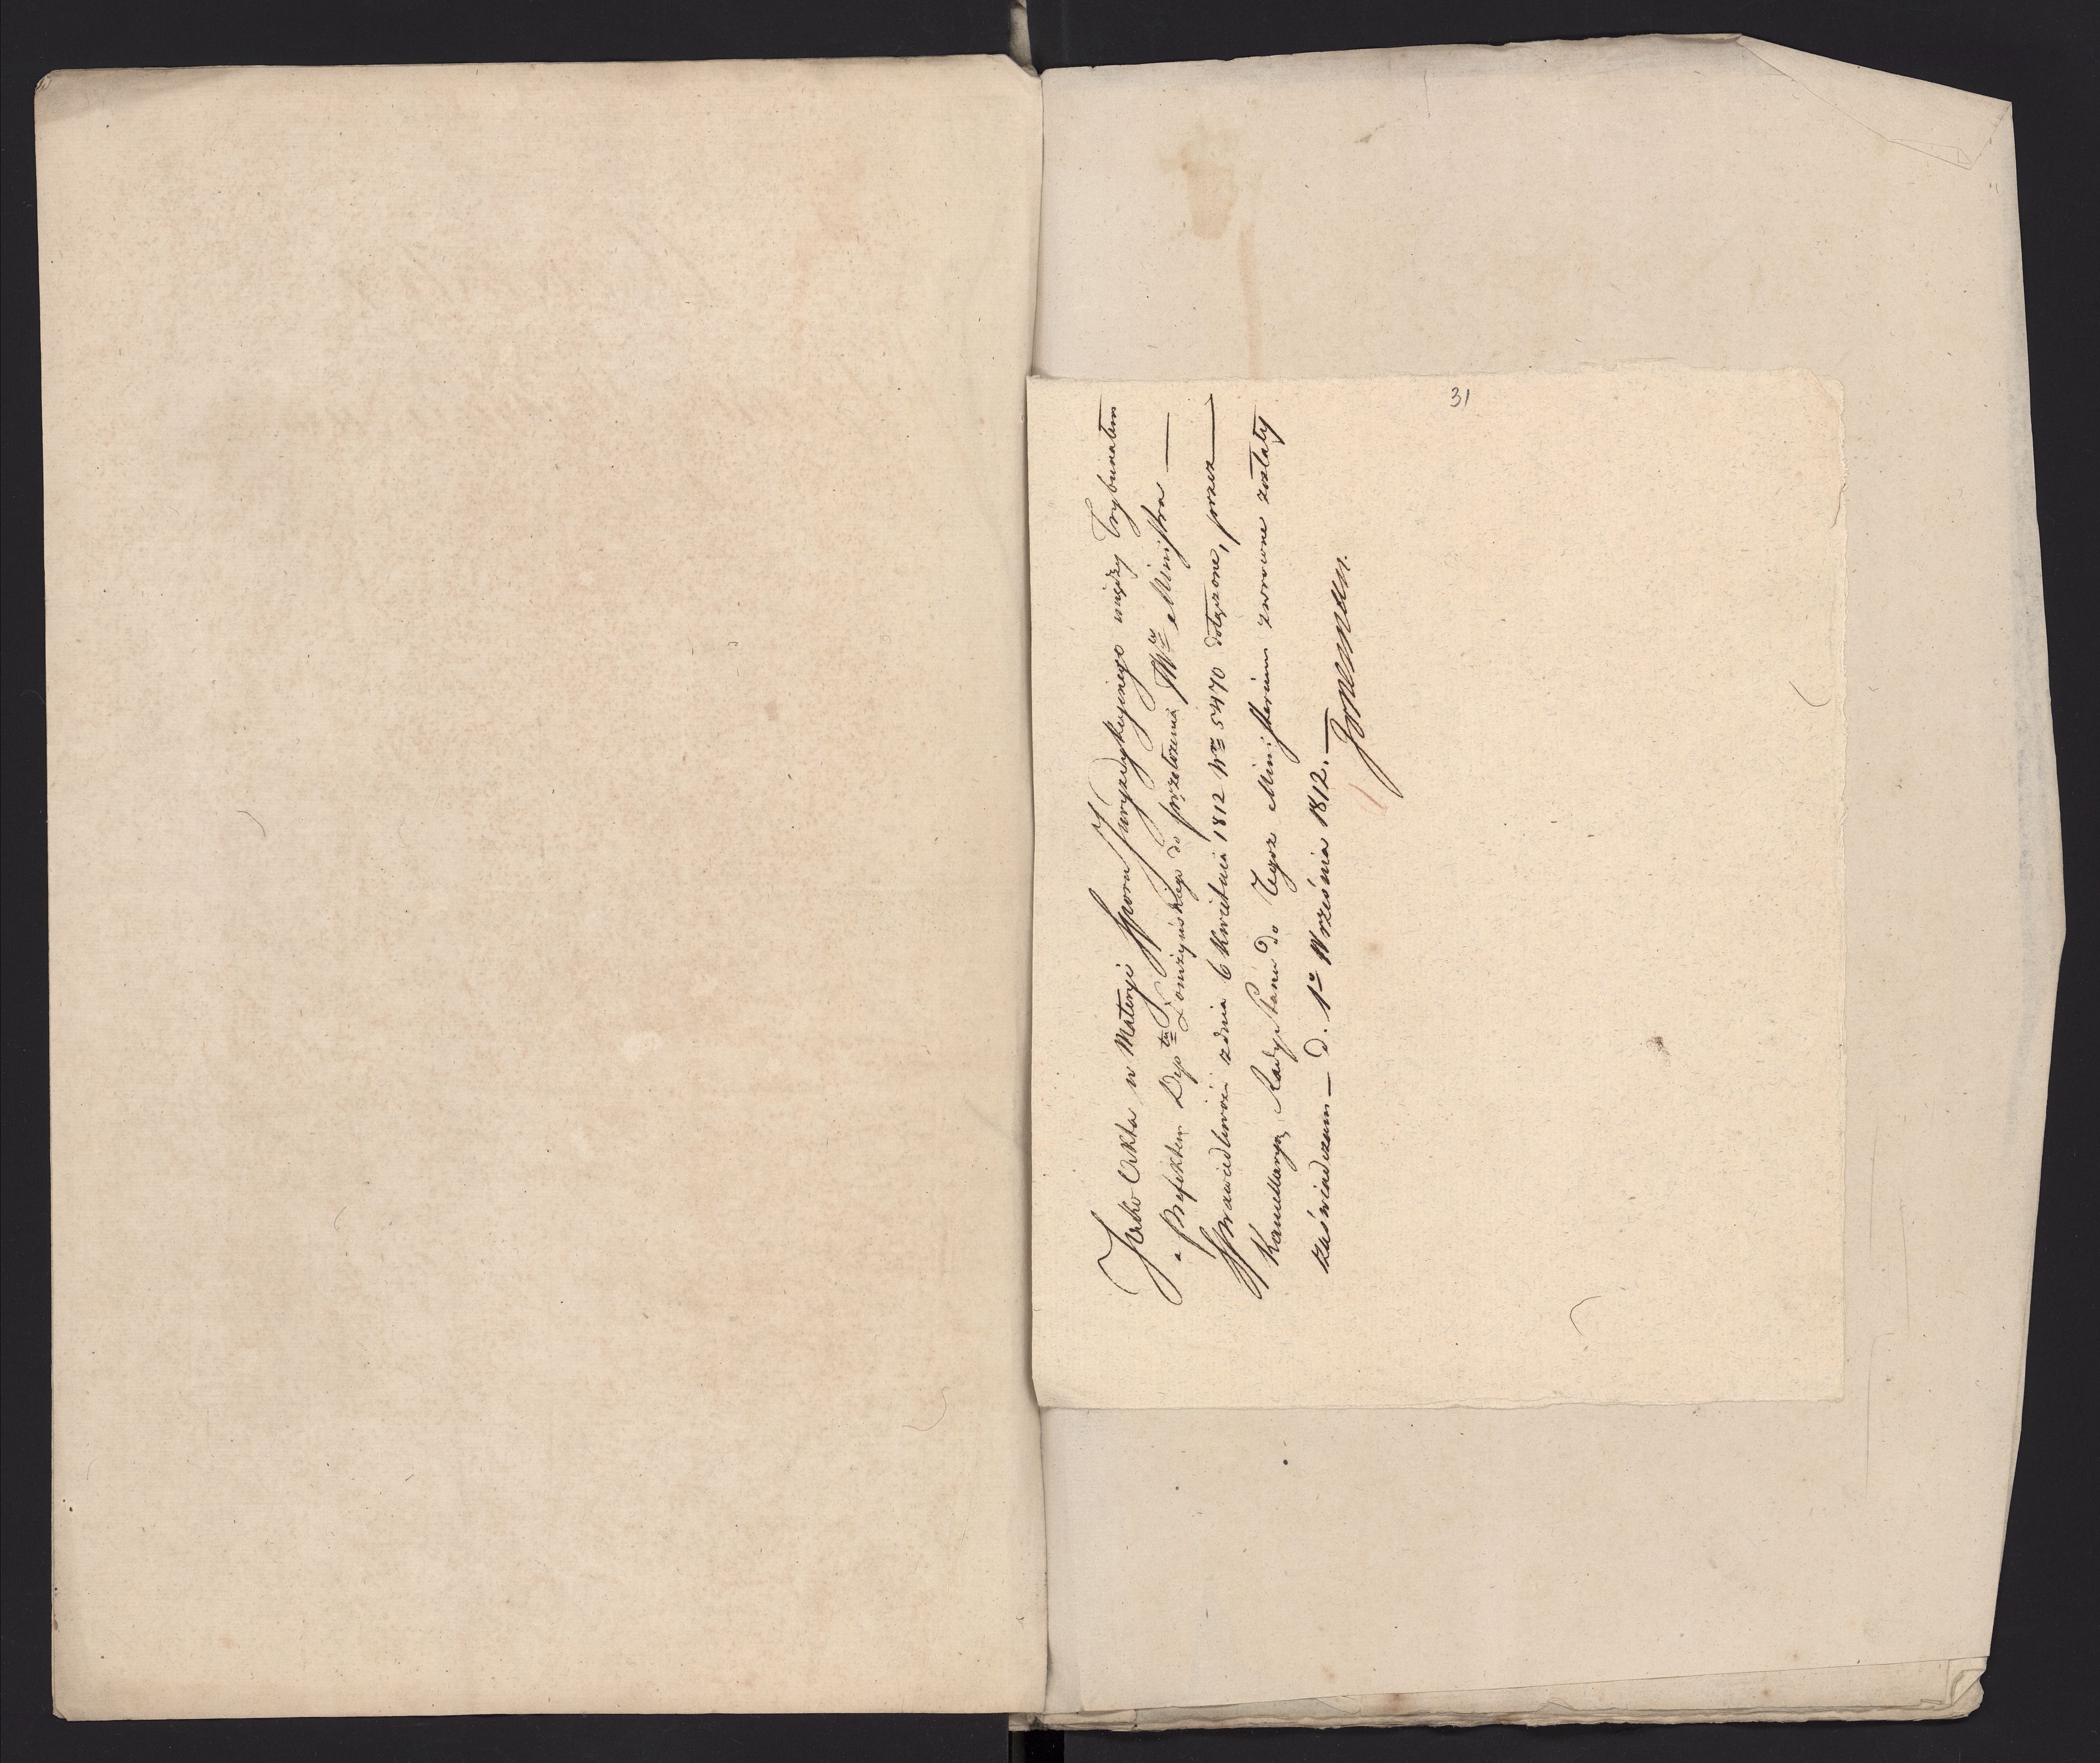 31
Jako Akta w Materyi Sporu Juryzdykcyjnego między Trybunałem
a Prefektem Dep<sup>tu</sup> Łomżyńskiego do przełożenia JW<sup>o</sup> Ministra —
Sprawiedliwości z dnia 6 Kwietnia 1812 N<sup>ro</sup> 5470 dołączone, przez —
Kancellaryą Rady Stanu do Tegoż Ministerium zwrocone zostały
zaświadczam — d. 1<sup>o</sup> Września 1812. —